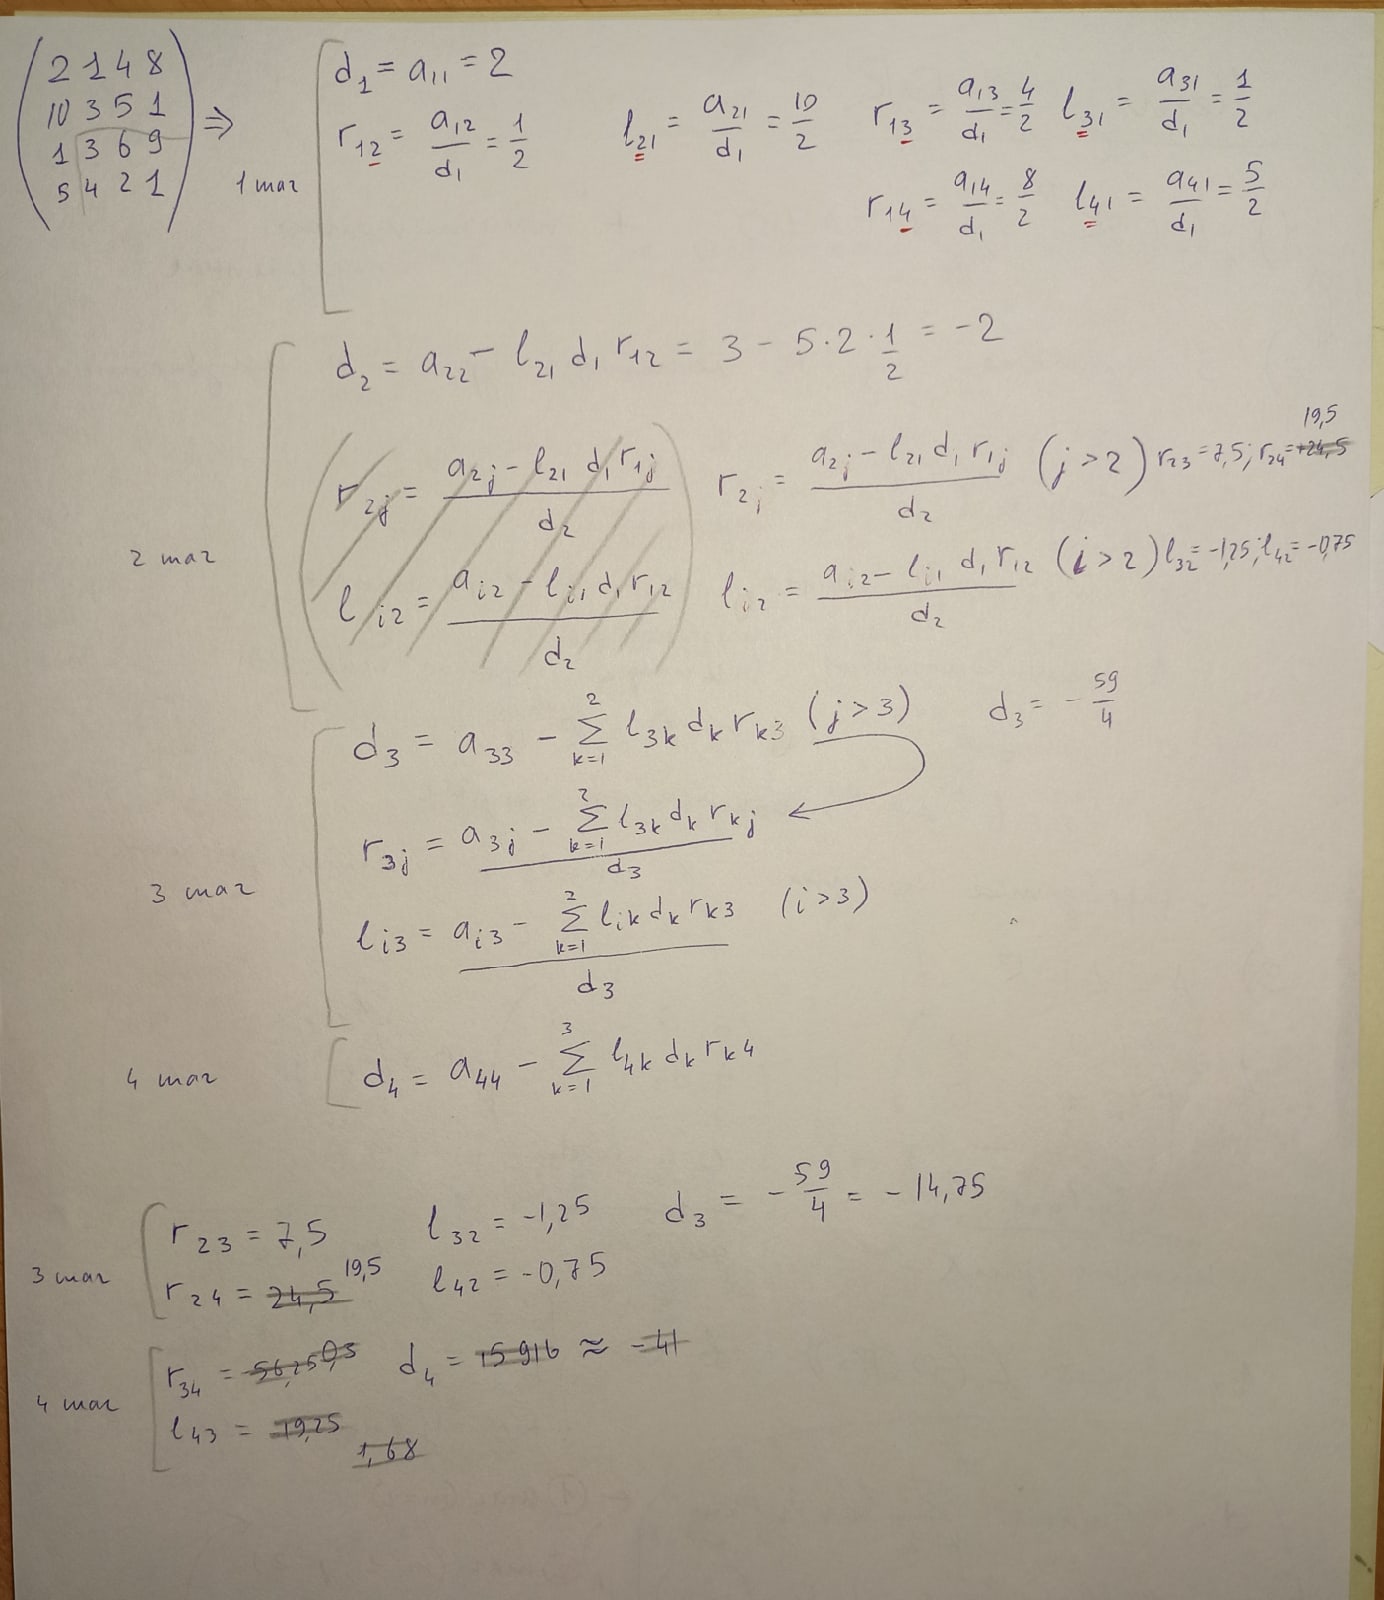 2 1 4 8
10 3 5 1
1 3 6 9
5 4 2 1
⇒
1 шаг
d₁ = a₁₁ = 2
r₁₂ = a₁₂/d₁ = 1/2 l₂₁ = a₂₁/d₁ = 10/2 r₁₃ = a₁₃/d₁ = 4/2 l₃₁ = a₃₁/d₁ = 1/2
r₁₄ = a₁₄/d₁ = 8/2 l₄₁ = a₄₁/d₁ = 5/2
2 шаг
d₂ = a₂₂ - l₂₁ d₁ r₁₂ = 3 - 5·2·1/2 = -2
(r₂ⱼ = (a₂ⱼ - l₂₁ d₁ r₁ⱼ)/d₂
lᵢ₂ = (aᵢ₂ - lᵢ₁ d₁ r₁₂)/d₂)
r₂ⱼ = (a₂ⱼ - l₂₁ d₁ r₁ⱼ)/d₂ (j > 2) r₂₃ = 7,5; r₂₄ = +24,5 19,5
lᵢ₂ = (aᵢ₂ - lᵢ₁ d₁ r₁₂)/d₂ (i > 2) l₃₂ = -1,25; l₄₂ = -0,75
3 шаг
d₃ = a₃₃ - ∑ₖ₌₁² l₃ₖ dₖ rₖ₃ (j > 3) d₃ = - 59/4
r₃ⱼ = (a₃ⱼ - ∑ₖ₌₁² l₃ₖ dₖ rₖⱼ)/d₃
lᵢ₃ = (aᵢ₃ - ∑ₖ₌₁² lᵢₖ dₖ rₖ₃)/d₃ (i > 3)
4 шаг
d₄ = a₄₄ - ∑ₖ₌₁³ l₄ₖ dₖ rₖ₄
3 шаг
r₂₃ = 7,5 l₃₂ = -1,25 d₃ = - 59/4 = - 14,75
r₂₄ = 24,5 19,5 l₄₂ = -0,75
4 шаг
r₃₄ = d₄ = 15 916 ≈ -41
l₄₃ = 19,25
1,68